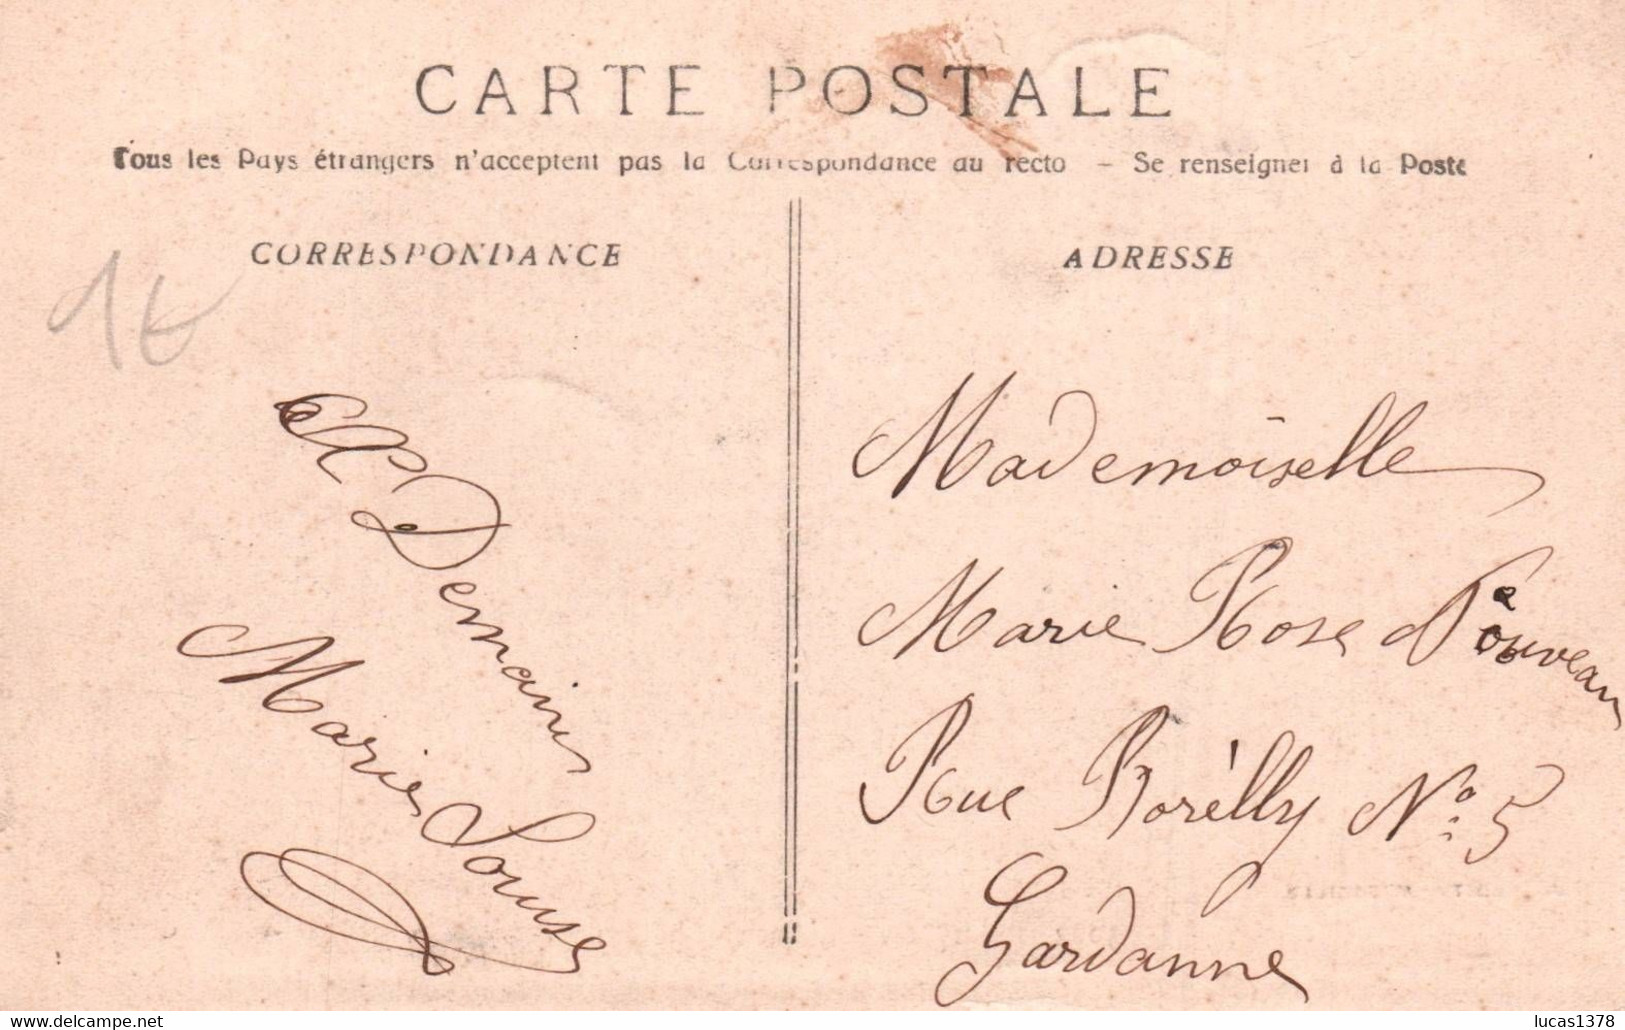 CARTE POSTALE
Tous les Pays étrangers n'acceptent pas la Correspondance au recto – Se renseigner à la Poste
CORRESPONDANCE
ADRESSE
1€
A Demain
Marie Louise
Mademoiselle
Marie Rose
Rue Borélly No: 5
Gardanne
delcampe.net
lucas1378